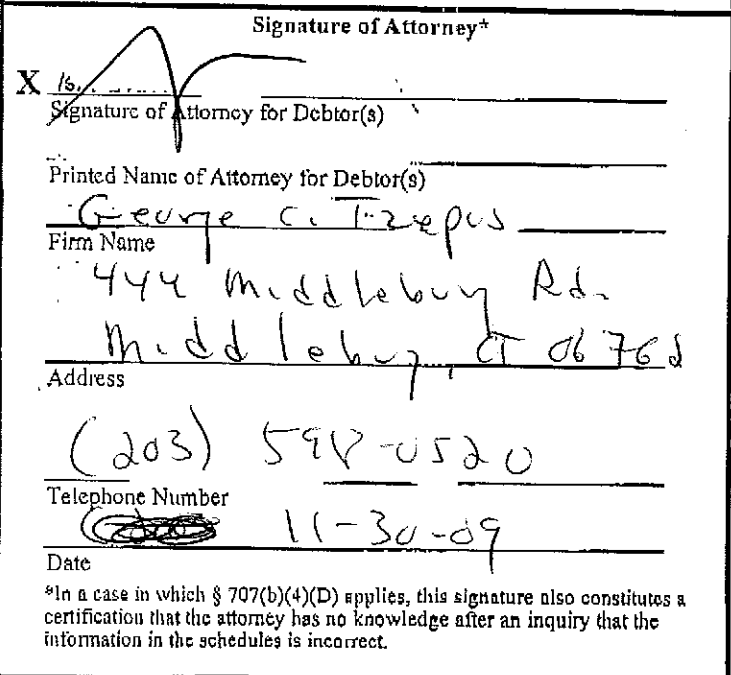 Signature of Attorney*
X /s
Signature of Attorney for Debtor(s)
Printed Name of Attorney for Debtor(s)
George C. Tzepos
Firm Name
444 Middlebury Rd.
Middlebury, CT 06762
Address
(203) 598-0520
Telephone Number
11-30-09
Date
*In a case in which § 707(b)(4)(D) applies, this signature also constitutes a
certification that the attorney has no knowledge after an inquiry that the
information in the schedules is incorrect.